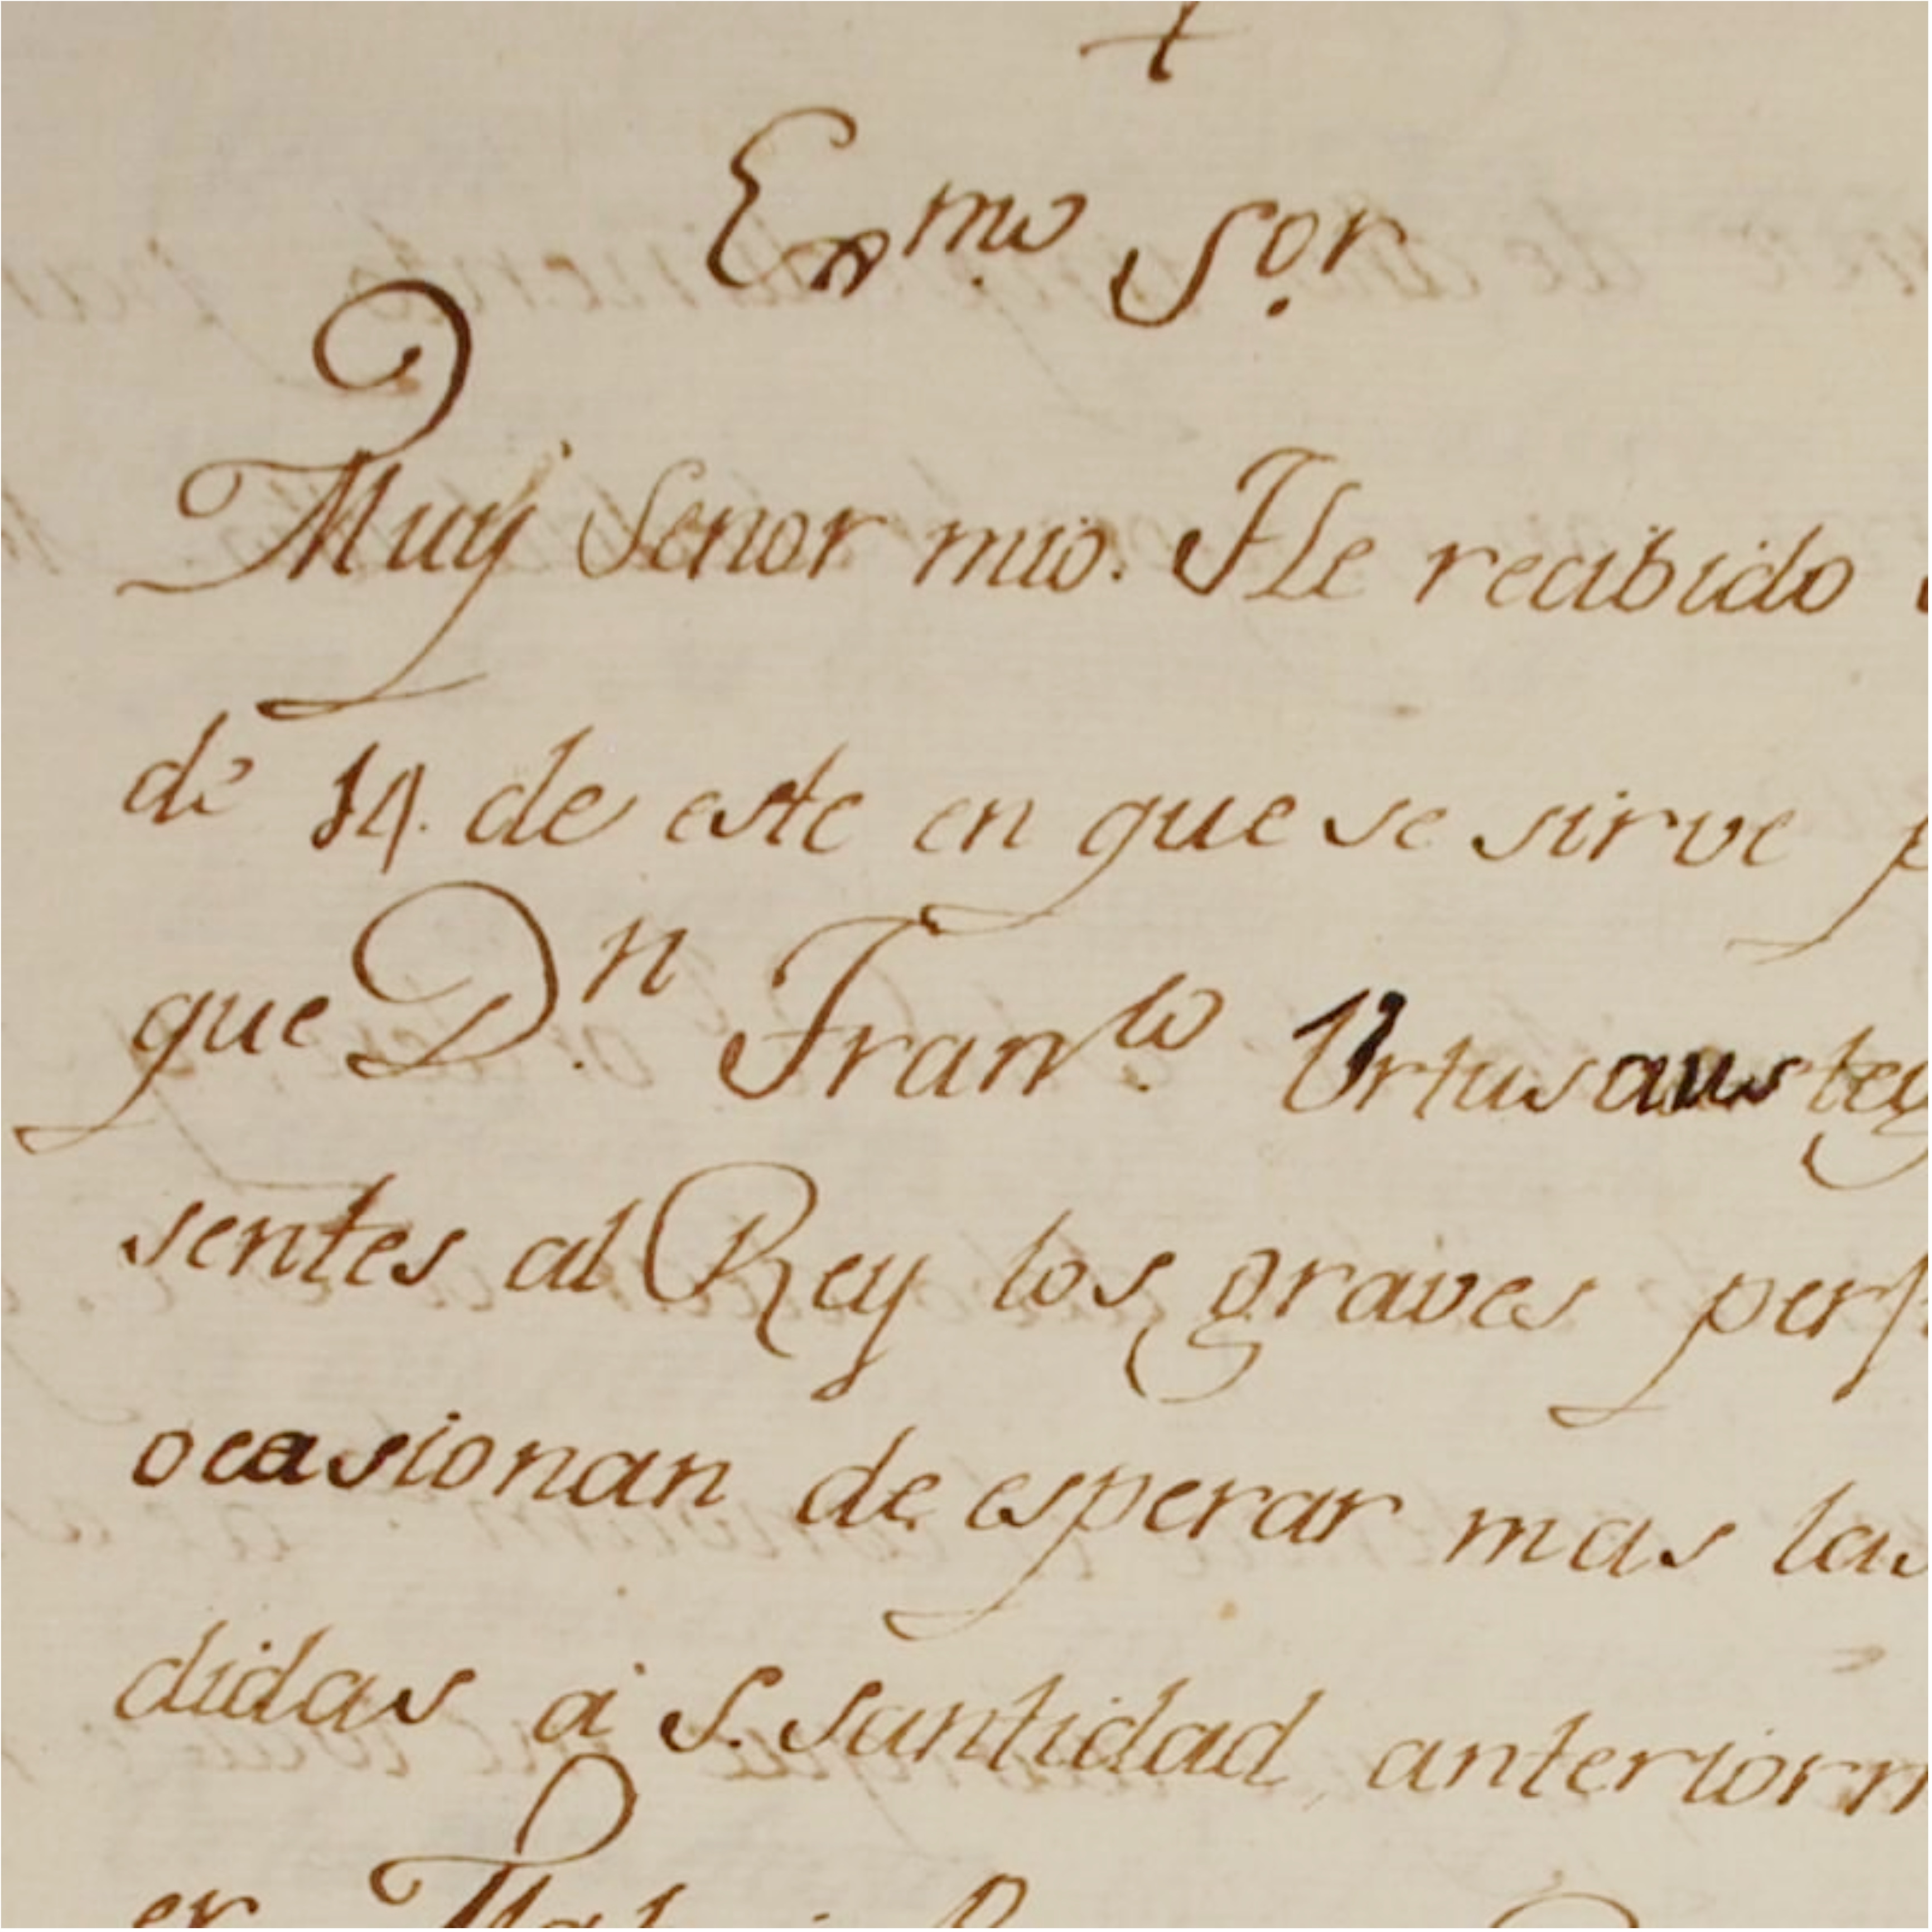 +
Exmo. Sor.
Muy Senor mio. He recibido
de 14. de este en que se sirve
que Dn. Franco. Urtusausteg
sentes al Rey los graves perj
ocasionan de esperar mas las
didas a S. Santidad anteriorm
er